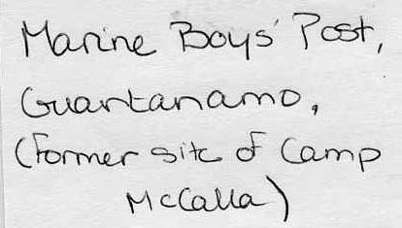 Marine Boys' Post,
Guantanamo,
(Former site of Camp
McCalla)